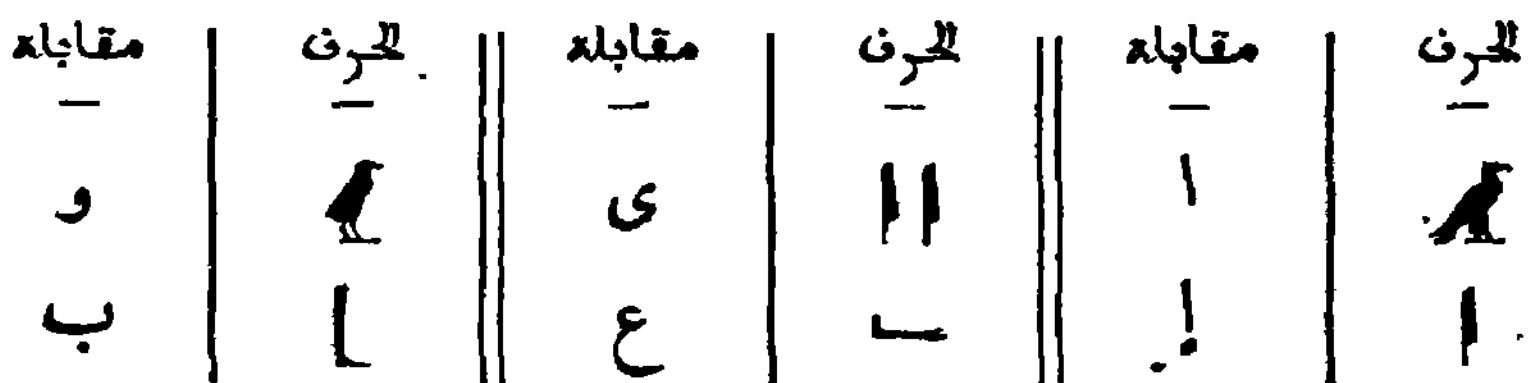 الحرف مقابله الحرف مقابله الحرف مقابله
𓄿 ا 𓇌 ى 𓅱 و
𓇋 إ 𓂝 ع 𓃀 ب